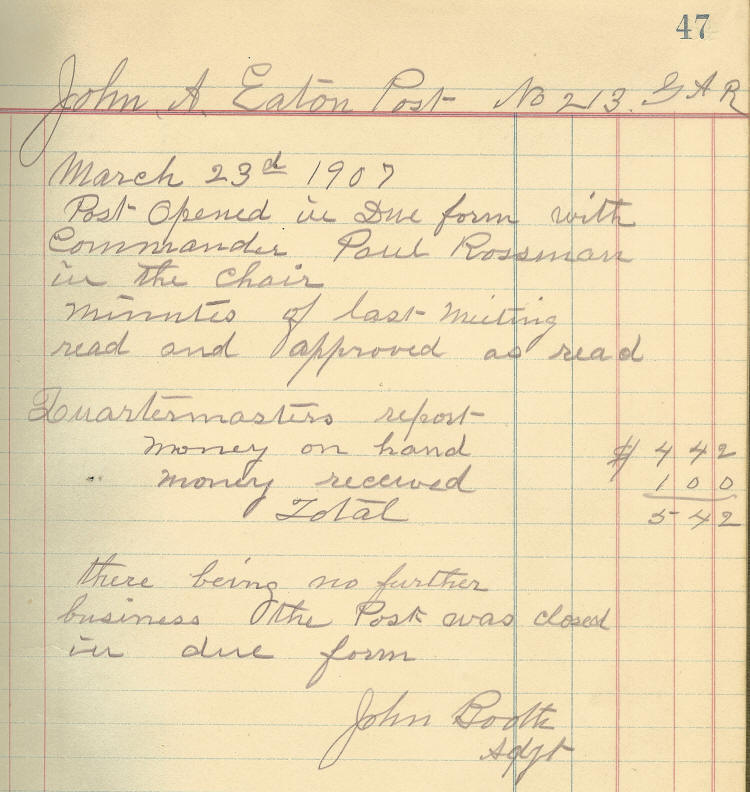 47
John A. Eaton Post No 213. G A R
March 23d 1907
Post Opened in Due form with
Commander Paul Rossman
in the Chair
minutes of last Meeting
read and approved as read
Quartermasters report
money on hand $ 4 42
" money received 1 00
Total 5 42
there being no further
business the Post was closed
in due form
John Booth
Adjt